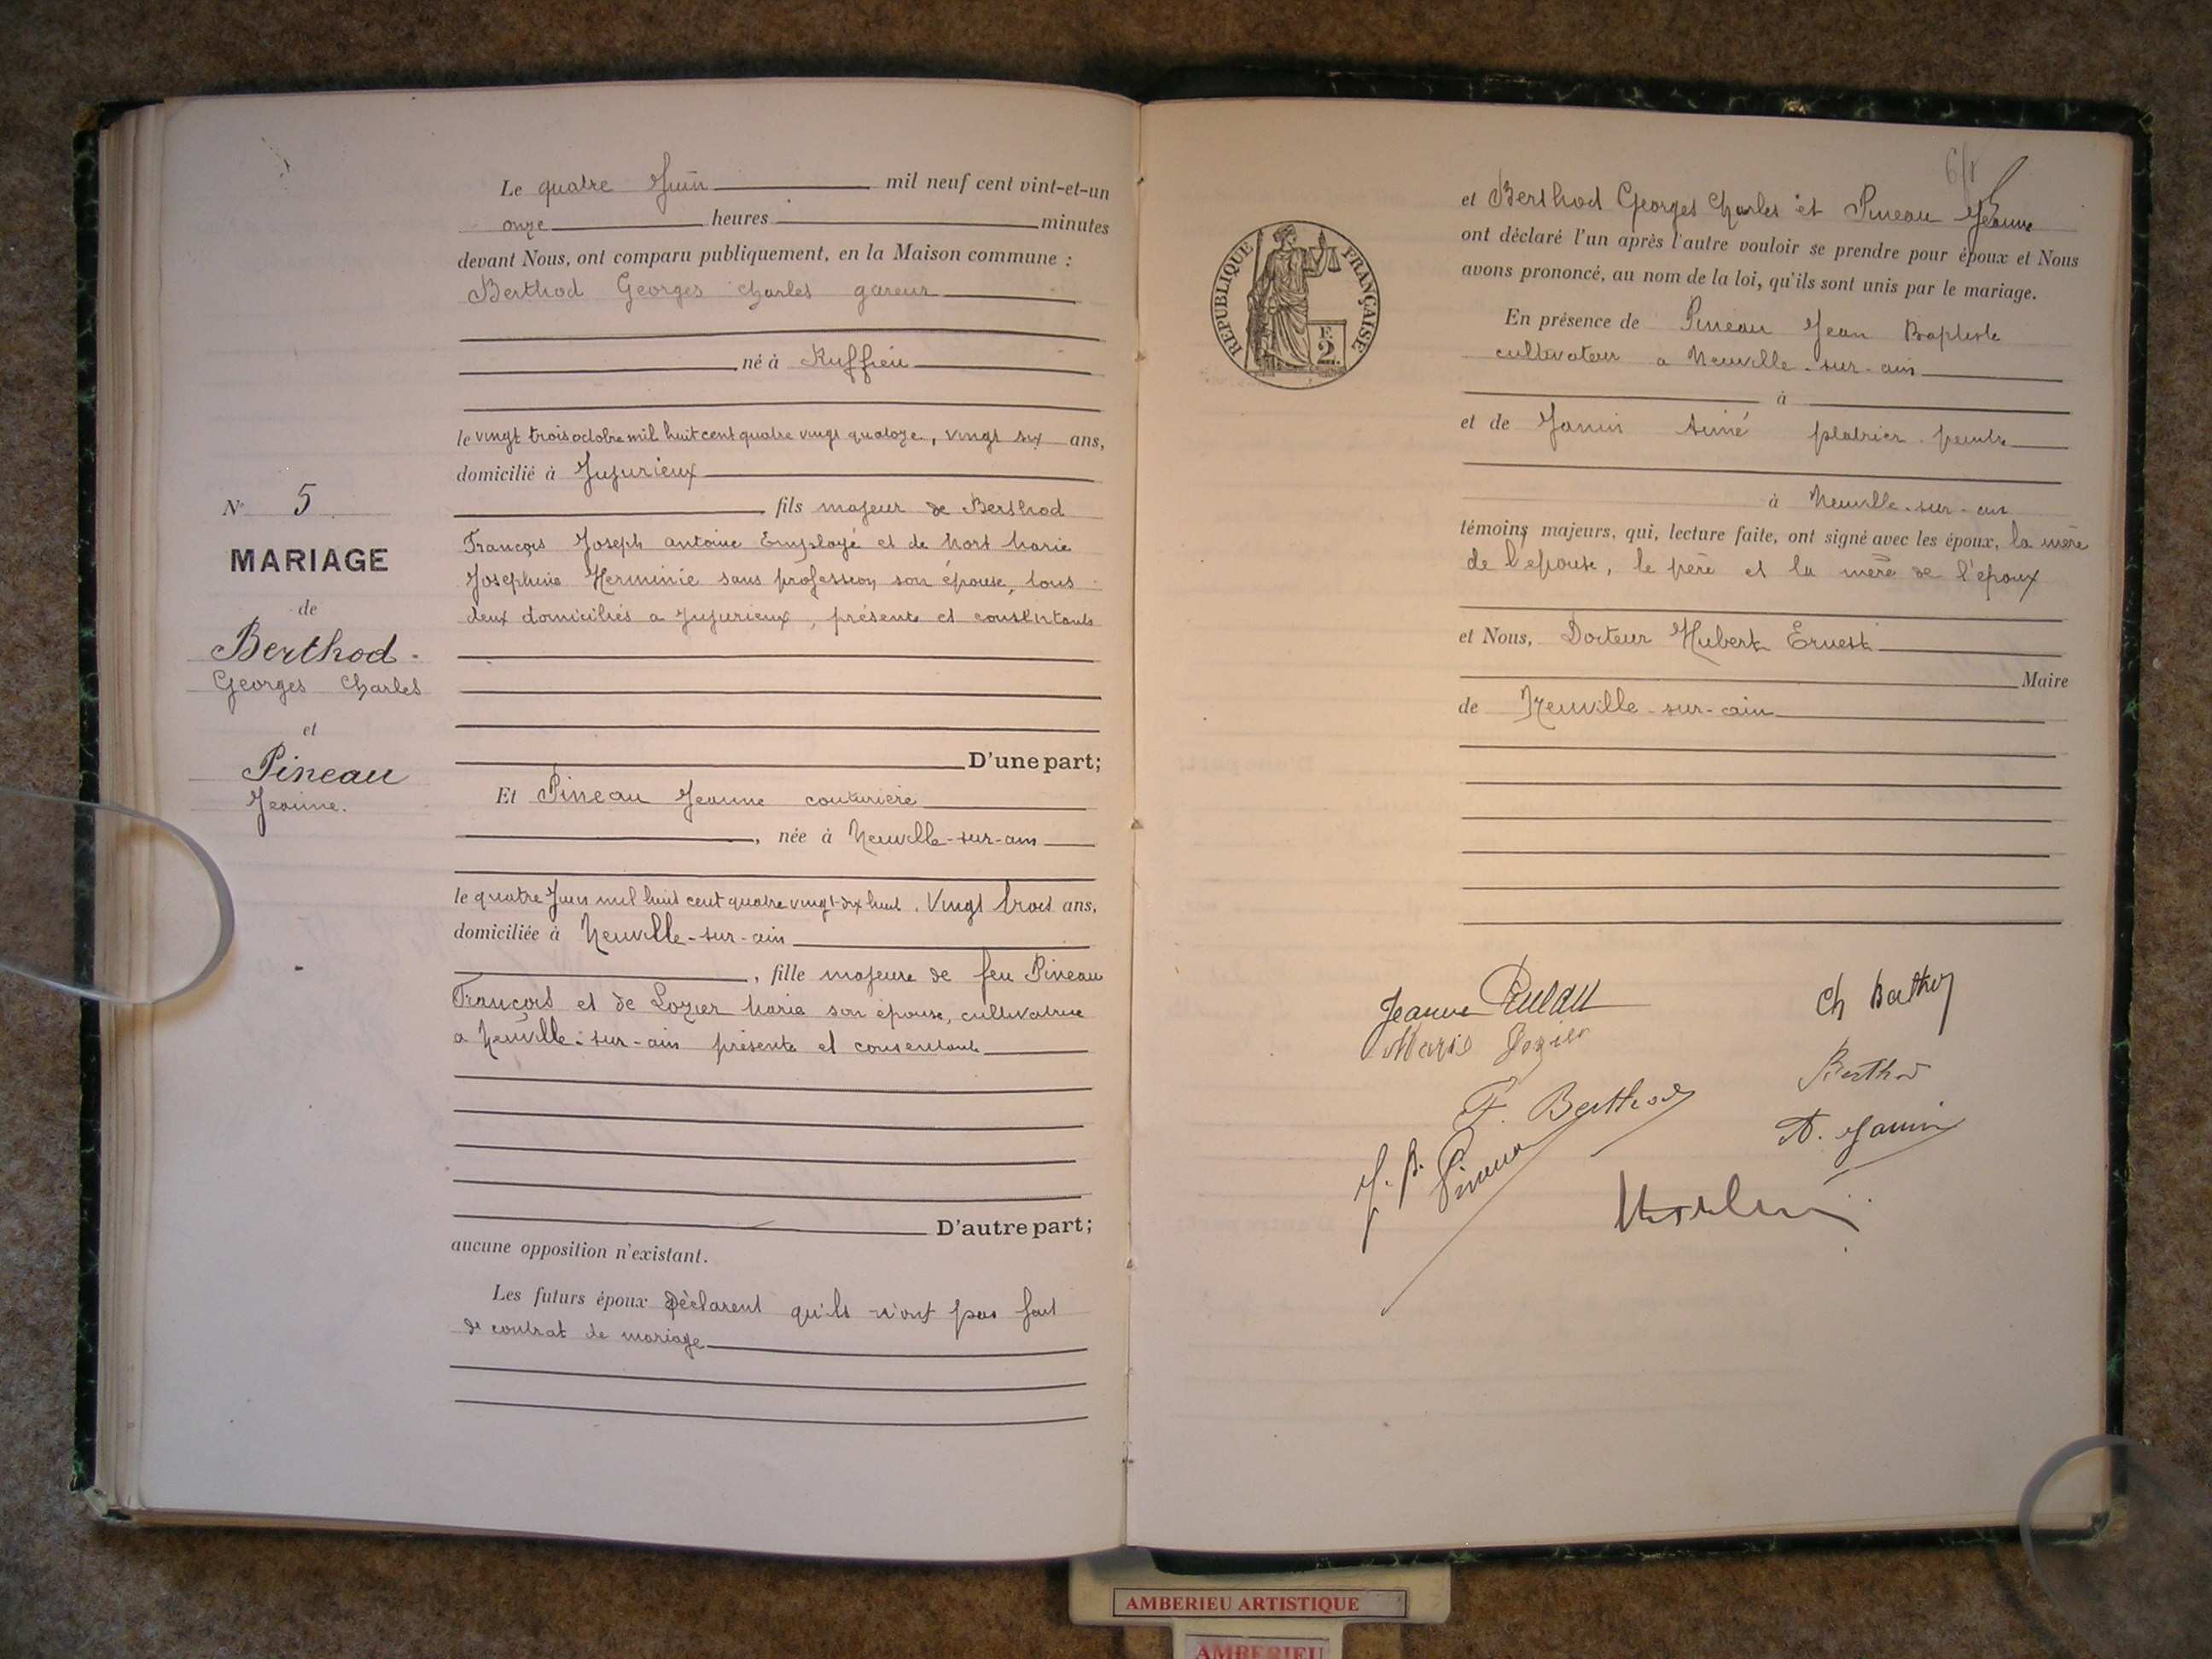 Le quatre Juin mil neuf cent vint-et-un
onze heures minutes
devant Nous, ont comparu publiquement, en la Maison commune :
Berthod Georges Charles gareur
né à Ruffieu
le vingt trois octobre mil huit cent quatre vingt quatoze, vingt six ans,
domicilié à Jujurieux
fils majeur de Berthod
François Joseph antoine Employé et de Mort Marie
Josephine Herminie sans profession, son épouse, tous
deux domiciliés a Jujurieux, présents et consentants
D'une part;
Et Pineau Jeanne couturière
, née à Neuville-sur-ain
le quatre Juin mil huit cent quatre vingt-dix huit, Vingt trois ans,
domiciliée à Neuville-sur-ain
, fille majeure de feu Pineau
François et de Lozier Marie son épouse, cultivatrice
a Neuville-sur-ain présente et consentante
D'autre part;
aucune opposition n'existant.
Les futurs époux déclarent qu'ils n'ont pas fait
de contrat de mariage
N° 5
MARIAGE
de
Berthod
Georges Charles
et
Pineau
Jeanne.
REPUBLIQUE FRANÇAISE
F.
2.
et Berthod Georges Charles et Pineau Jeanne
ont déclaré l'un après l'autre vouloir se prendre pour époux et Nous
avons prononcé, au nom de la loi, qu'ils sont unis par le mariage.
En présence de Pineau Jean Baptiste
cultivateur a Neuville-sur-ain
à
et de Janin Aimé platrier-peintre
à Neuville-sur-ain
témoins majeurs, qui, lecture faite, ont signé avec les époux, la mère
de l'épouse, le père et la mère de l'époux
et Nous, Docteur Hubert Ernest
Maire
de Neuville-sur-ain
Jeanne Pineau
Ch Berthod
Marie Lozier
Berthod
F. Berthod
A. Janin
J. B. Pineau
AMBERIEU ARTISTIQUE
AMBERIEU